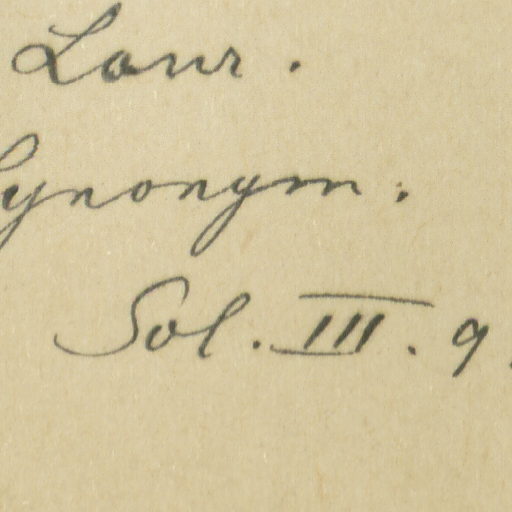 Laur.
Synonym:
Sol. III. 9.